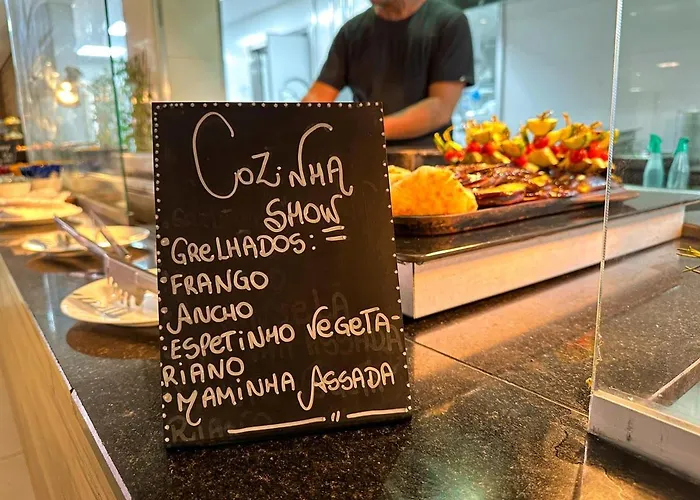 Cozinha
Show
• Grelhados:
• Frango
• Ancho
• Espetinho Vegeta-
riano
• Maminha Assada